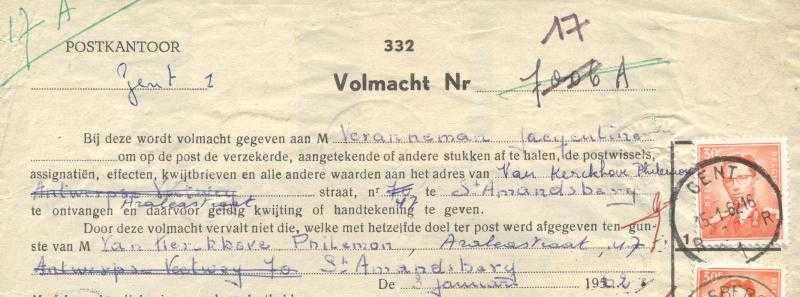 17 A
POSTKANTOOR 332 17
Gent 1 Volmacht Nr 7006 A
Bij deze wordt volmacht gegeven aan M Veranneman Jacquentine
om op de post de verzekerde, aangetekende of andere stukken af te halen, de postwissels,
assignatiën, effecten, kwijtbrieven en alle andere waarden aan het adres van Van Kerckhove Philemon
Antwerpse Voetweg straat, nr te St Amandsberg
Azaleastraat 47
te ontvangen en daarvoor geldig kwijting of handtekening te geven.
Door deze volmacht vervalt die niet, welke met hetzelfde doel ter post werd afgegeven ten gun-
ste van M Van Kerckhove Philemon, Azaleastraat, 47
Antwerpse Voetweg 70 St Amandsberg
De 3 januari 19
GENT
1 B 1